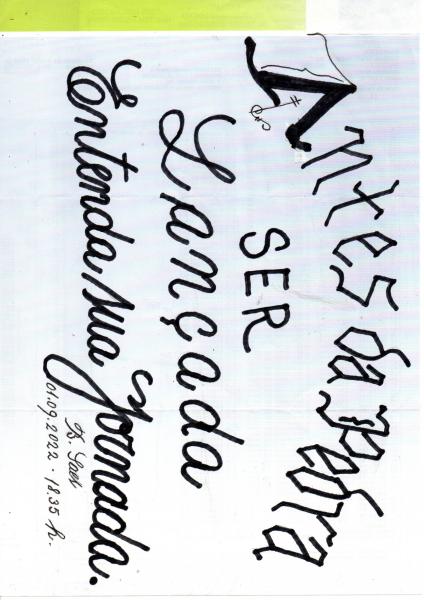 Antes da Pedra
SER
Lançada
Entenda sua Jornada.
01.09.2022 - 18.35 h.